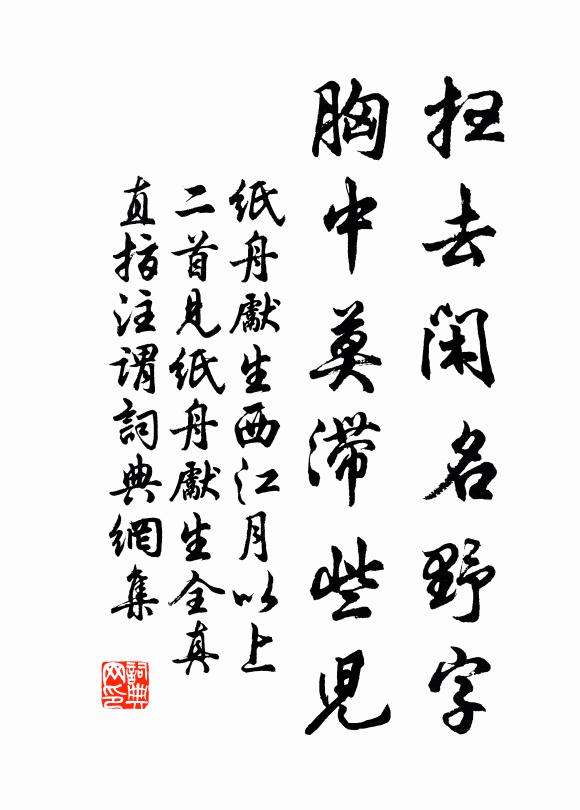 扫去闲名野字
胸中莫滞些儿
紙舟獻生西江月以上
二首見紙舟獻生全真
直指注謂詞典網集
詞典网印